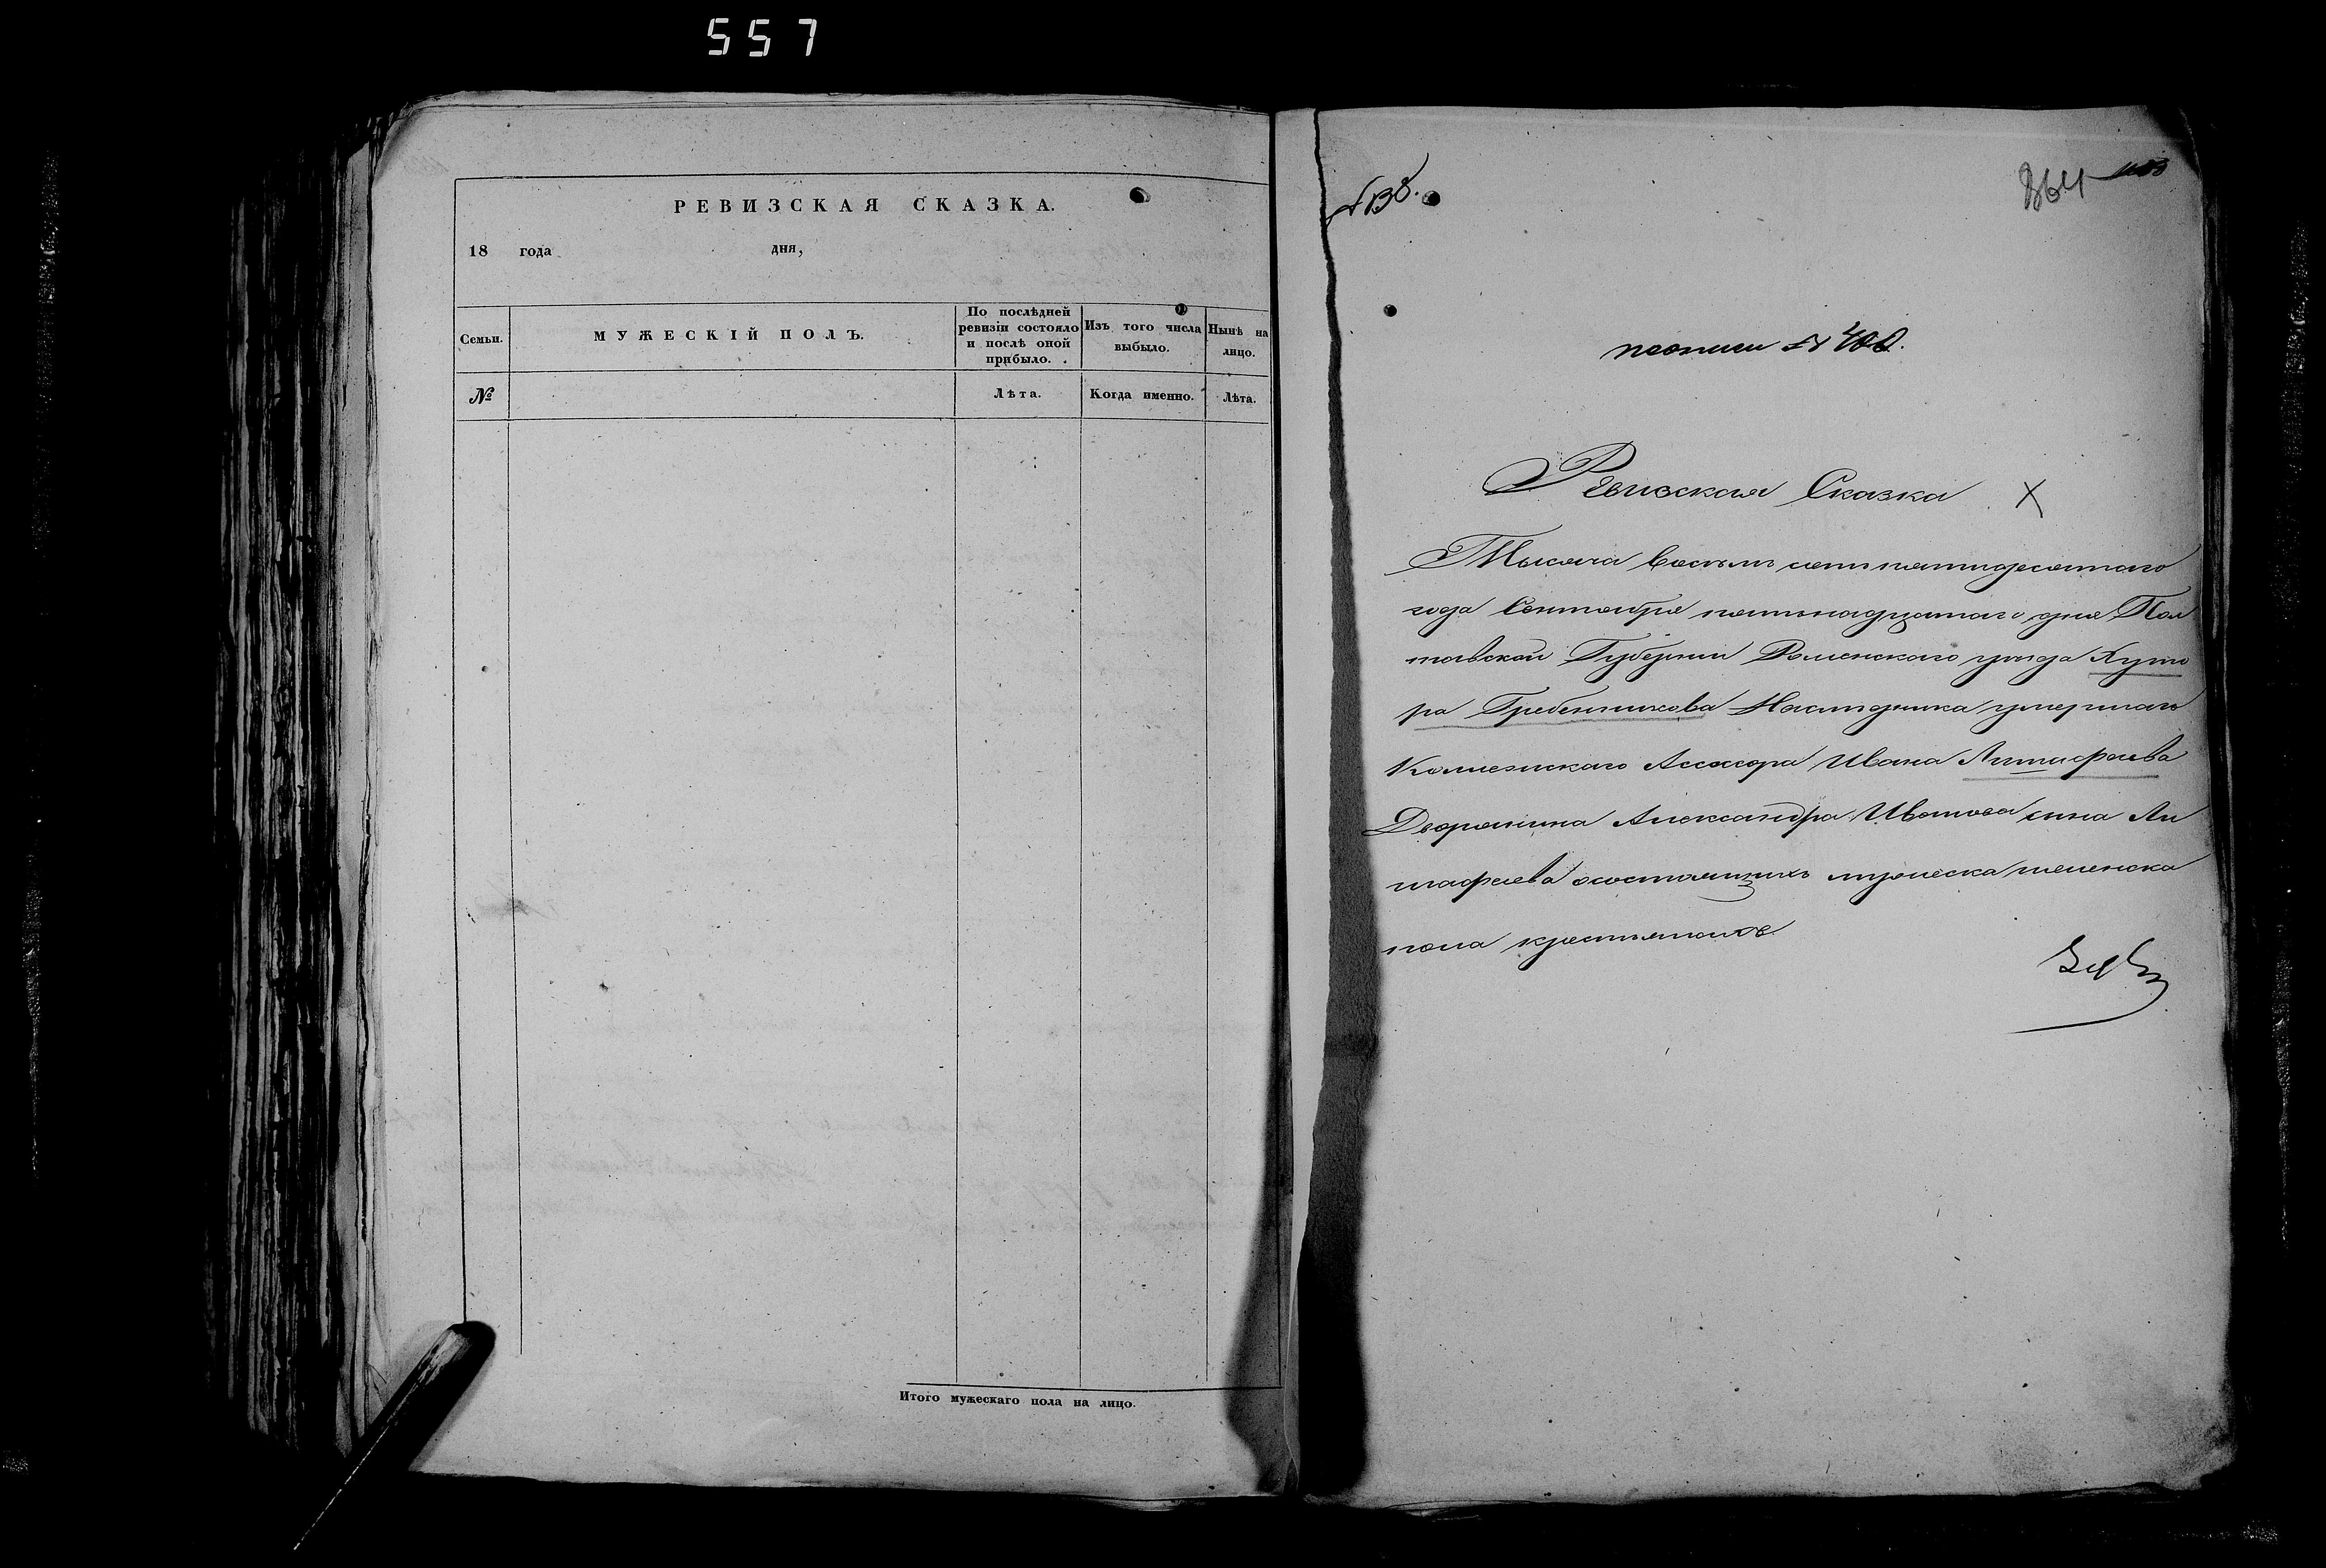 557
РЕВИЗСКАЯ СКАЗКА.
18 года дня,
Семьи.
МУЖЕСКІЙ ПОЛЪ.
По послѣдней
ревизіи состояло
и послѣ оной
прибыло.
Изъ того числа
выбыло.
Нынѣ на
лицо.
№
Лѣта.
Когда именно.
Лѣта.
Итого мужескаго пола на лицо.
864
Ревизская Сказка
Тысяча восемь сотъ пятидесятаго
года Сентября пятьнадцатаго дня Пол
тавской Губерніи Роменского уѣзда Хуто
ра Гребенникова Наследника умершаго
Коллежскаго Ассесора Ивана
Дворянина Александра Иванова сина
о состоящихъ мужеска женска
пола крестьянахъ